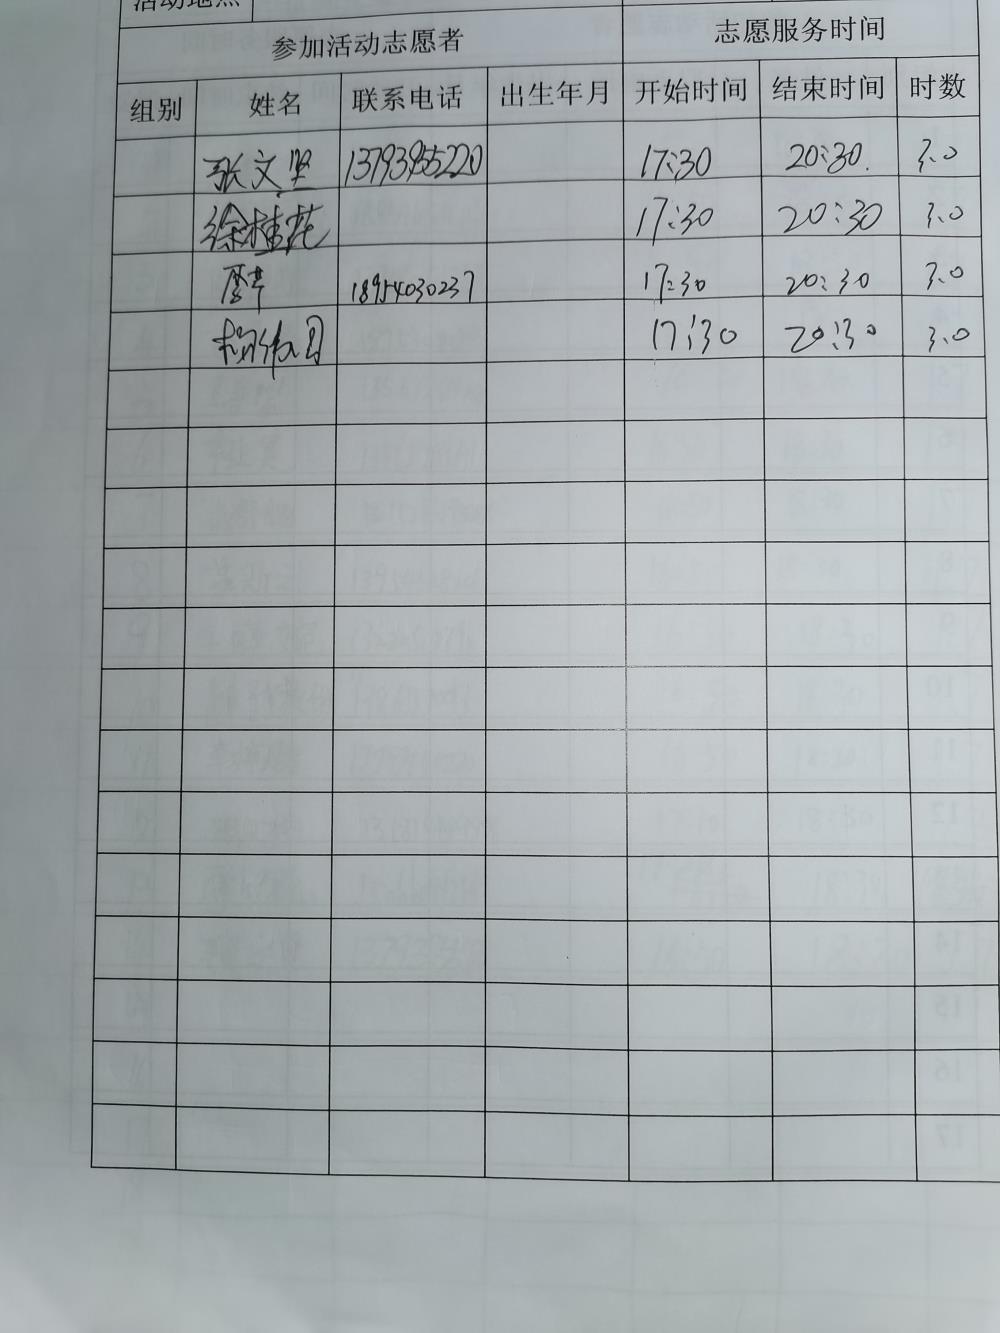 活动地点
参加活动志愿者 志愿服务时间
组别 姓名 联系电话 出生年月 开始时间 结束时间 时数
张文坚 13793955220 17:30 20:30. 3.0
徐桂花 17:30 20:30 3.0
18954030237 17:30 20:30 3.0
17:30 20:30 3.0